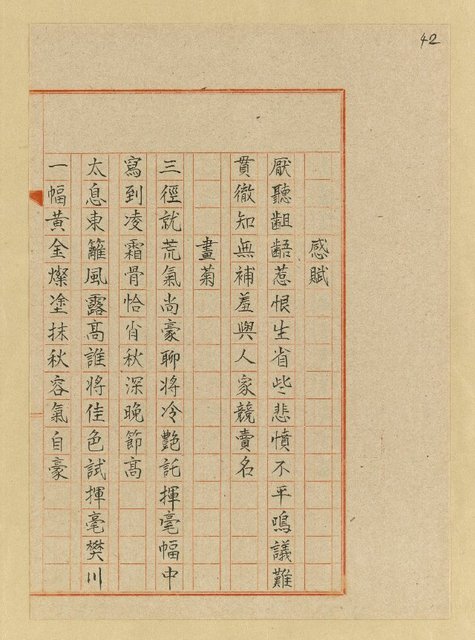 42
感賦
厭聽齟齬惹恨生省些些悲憤不平鳴議難
貫徹知無補羞與人家競賣名
畫菊
三徑就荒氣尚豪聊將冷艷託揮毫幅中
寫到凌霜骨恰肖秋深晚節高
太息東籬風露高誰將佳色試揮毫樊川
一幅黃金燦塗抹秋容氣自豪